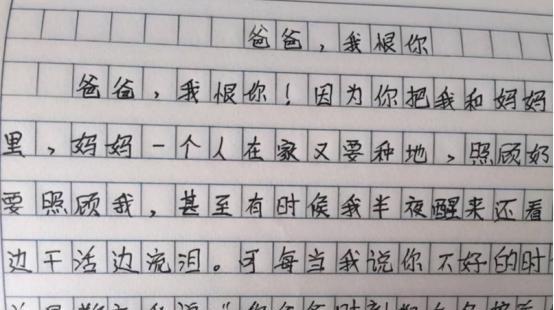 爸爸，我恨你
爸爸，我恨你！因为你把我和妈妈
里，妈妈一个人在家又要种地，照顾奶
要照顾我，甚至有时候我半夜醒来还看
边干活边流泪。可每当我说你不好的时